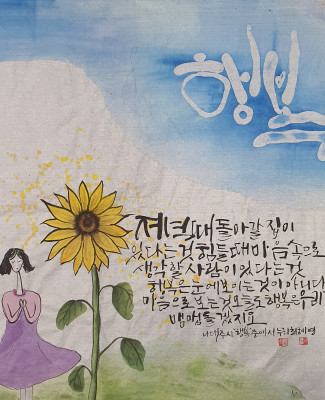 행복
저녁때 돌아갈 집이
있다는 것 힘들때 마음속으로
생각할 사람이 있다는 것
행복은 눈에 보이는 것이 아니다
마음으로 보는 것 오늘도 행복은 우리곁
맴맴돌겠지요
나태주시 행복 중에서 누리